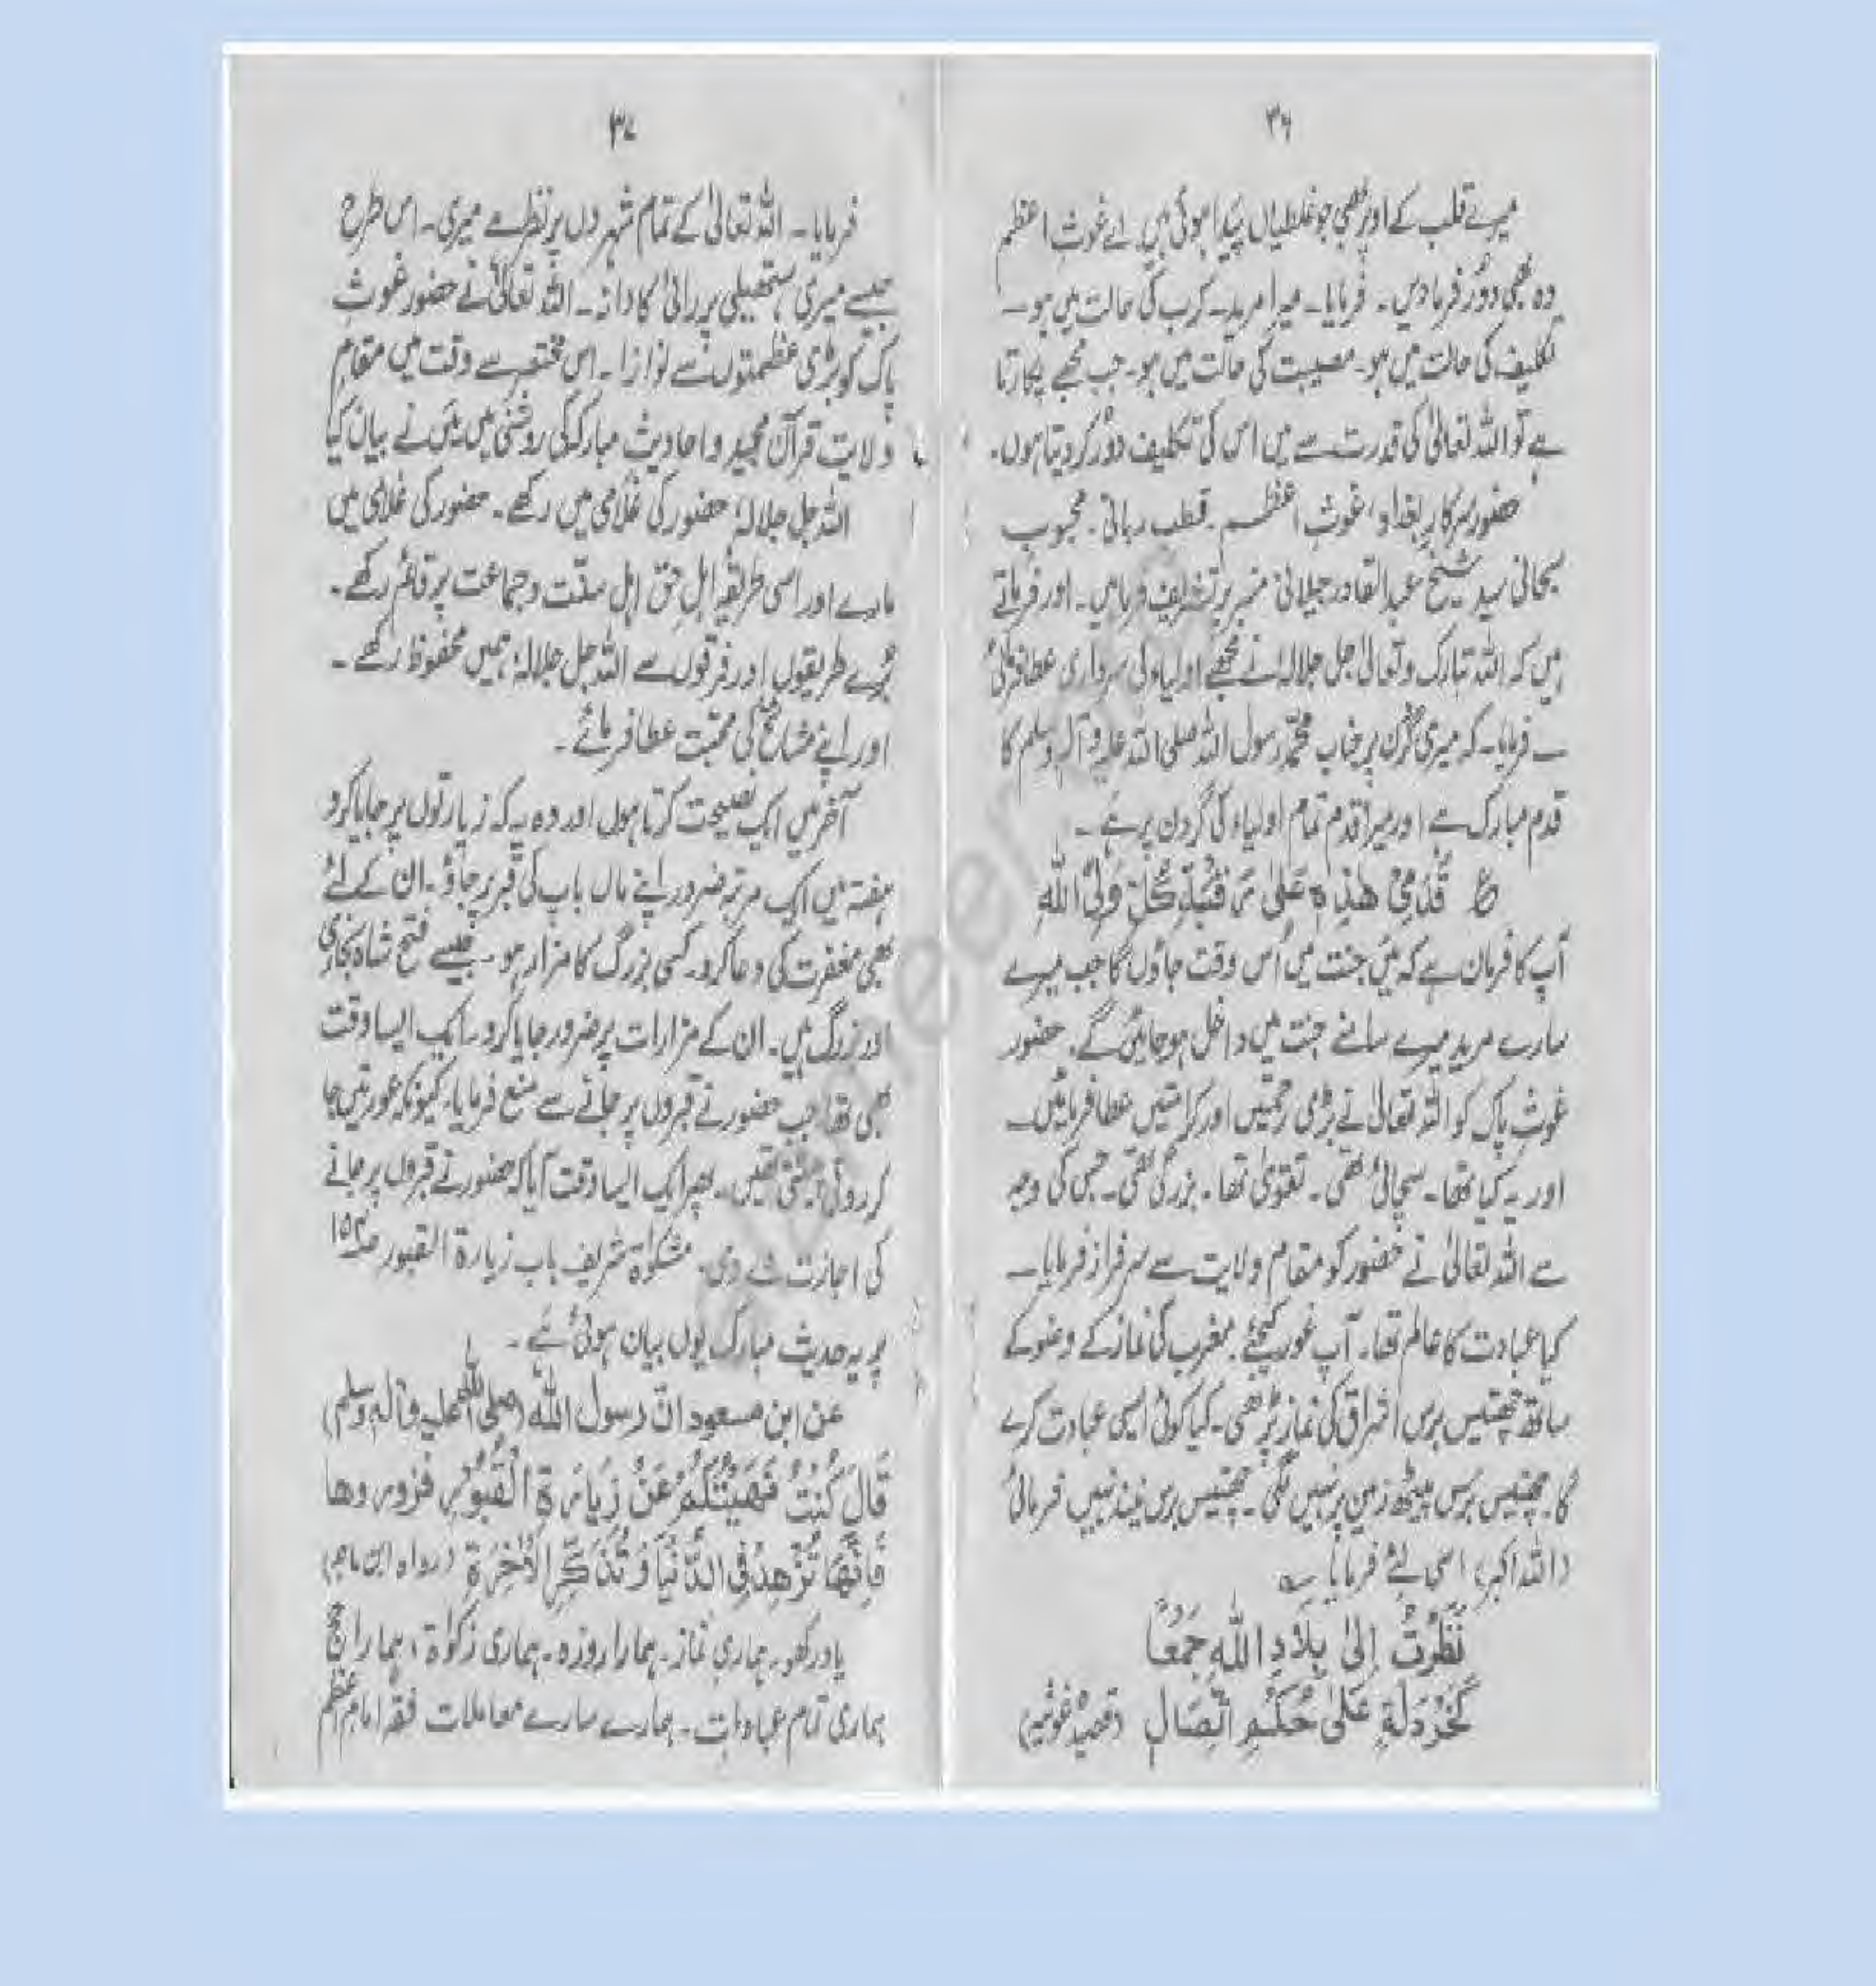 ۳۶
میرے قلب کے اوپر بھی جو غلطیاں پیدا ہوئی ہیں۔ اے غوثِ اعظم
وہ بھی دور فرما دیں۔ فرمایا۔ میرا مرید۔ کرب کی حالت میں ہو۔
تکلیف کی حالت میں ہو۔ مصیبت کی حالت میں ہو۔ جب مجھے پکارتا
ہے تو اللہ تعالیٰ کی قدرت سے میں اس کی تکلیف دور کر دیتا ہوں۔
حضور سرکارِ بغداد، غوثِ اعظم۔ قطب ربانی۔ محبوب
سبحانی سید شیخ عبدالقادر جیلانی منبر پر تشریف فرما ہیں۔ اور فرماتے
ہیں کہ اللہ تبارک و تعالیٰ جل جلالہٗ نے مجھے اولیاء کی سرداری عطا فرمائی
۔ فرمایا۔ کہ میری گردن پر جناب محمد رسول اللہ صلی اللہ علیہ وآلہٖ وسلم کا
قدم مبارک ہے اور میرا قدم تمام اولیاء کی گردن پر ہے۔
قَدَمِیْ ھٰذِہٖ عَلیٰ رَقَبَۃِ کُلِّ وَلِیِّ اللہِ
آپ کا فرمان ہے کہ میں جنت میں اُس وقت جاؤں گا جب میرے
سارے مرید میرے سامنے جنت میں داخل ہو جائیں گے۔ حضور
غوث پاک کو اللہ تعالیٰ نے بڑی رحمتیں اور کرامتیں عطا فرمائیں۔
اور یہ کیا تھا۔ سچائی تھی۔ تقویٰ تھا۔ بزرگی تھی۔ جس کی وجہ
سے اللہ تعالیٰ نے حضور کو مقام ولایت سے سرفراز فرمایا۔
کیا عبادت کا عالم تھا۔ آپ غور کیجئے۔ مغرب کی نماز کے وضو کے
ساتھ چھتیس برس اشراق کی نماز پڑھی۔ کیا کوئی ایسی عبادت کرے
گا۔ چھتیس برس پیٹھ زمین پر نہیں لگی۔ چھتیس برس نیند نہیں فرمائی
(اللہ اکبر) اسی لئے فرمایا ؎
نَظَرْتُ اِلیٰ بِلَادِ اللہِ جَمْعًا
کَخَرْدَلَۃٍ عَلیٰ حُکْمِ اتِّصَالِ (قصیدہ غوثیہ)
۳۷
فرمایا۔ اللہ تعالیٰ کے تمام شہروں پر نظر ہے میری۔ اس طرح
جیسے میری ہتھیلی پر رائی کا دانہ۔ اللہ تعالیٰ نے حضور غوثِ
پاک کو بڑی عظمتوں سے نوازا۔ اس مختصر سے وقت میں مقامِ
ولایت قرآن مجید و احادیث مبارکہ کی روشنی میں میں نے بیان کیا
اللہ جل جلالہٗ حضور کی غلامی میں رکھے۔ حضور کی غلامی میں
مارے اور اسی طریقہ اہلِ حق اہل سنّت و جماعت پر قائم رکھے۔
بُرے طریقوں اور فرقوں سے اللہ جل جلالہٗ ہمیں محفوظ رکھے۔
اور اپنے مشائخ کی محبت عطا فرمائے۔
آخر میں ایک نصیحت کرتا ہوں اور وہ یہ کہ زیارتوں پر جایا کرو
ہفتہ میں ایک مرتبہ ضرور اپنے ماں باپ کی قبر پر جاؤ۔ ان کے لئے
بھی مغفرت کی دعا کرو۔ کسی بزرگ کا مزار ہو۔ جیسے فتح شاہ بخاری
اور بزرگ ہیں۔ ان کے مزارات پر ضرور جایا کرو۔ ایک ایسا وقت
بھی تھا جب حضور نے قبروں پر جانے سے منع فرمایا۔ کیونکہ عورتیں جا
کر روتی پیٹتی تھیں۔ پھر ایک ایسا وقت آیا کہ حضور نے قبروں پر جانے
کی اجازت دے دی۔ مشکوٰۃ شریف باب زیارۃ القبور صـ۱۵۴
پر یہ حدیث مبارک یوں بیان ہوئی ہے۔
عن ابن مسعود انّ رسول اللہ (صلی اللہ علیہ وآلہٖ وسلم)
قَالَ کُنْتُ نَھَیْتُکُمْ عَنْ زِیَارَۃِ الْقُبُوْرِ فزوروھا
فَاِنَّھَا تُزَھِّدُ فِی الدُّنْیَا وَ تُذَکِّرُ الْاٰخِرَۃَ (رواہ ابن ماجہ)
یاد رکھو۔ ہماری نماز۔ ہمارا روزہ۔ ہماری زکوٰۃ، ہمارا حج
ہماری تمام عبادات۔ ہمارے سارے معاملات فقہ امامِ اعظم